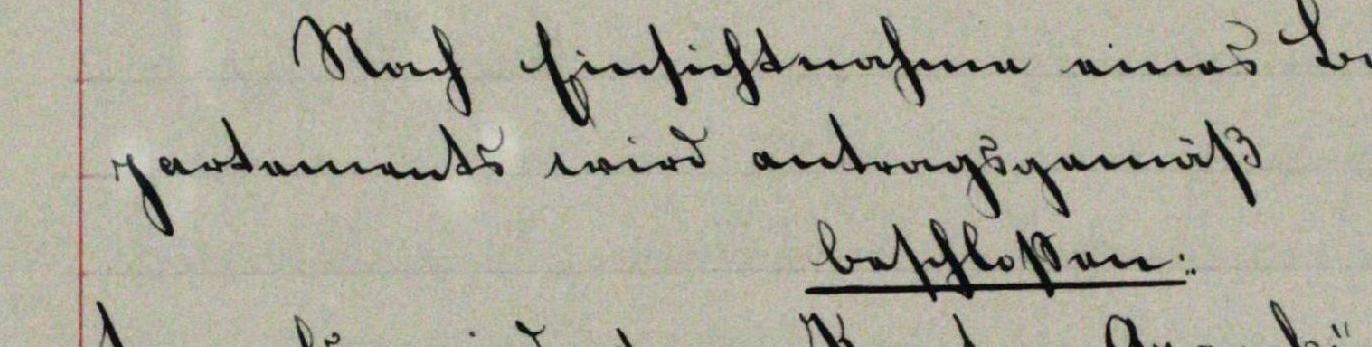 Nach Einsichtnahme eines Be
partements wird antragsgemäß
beschlossen: